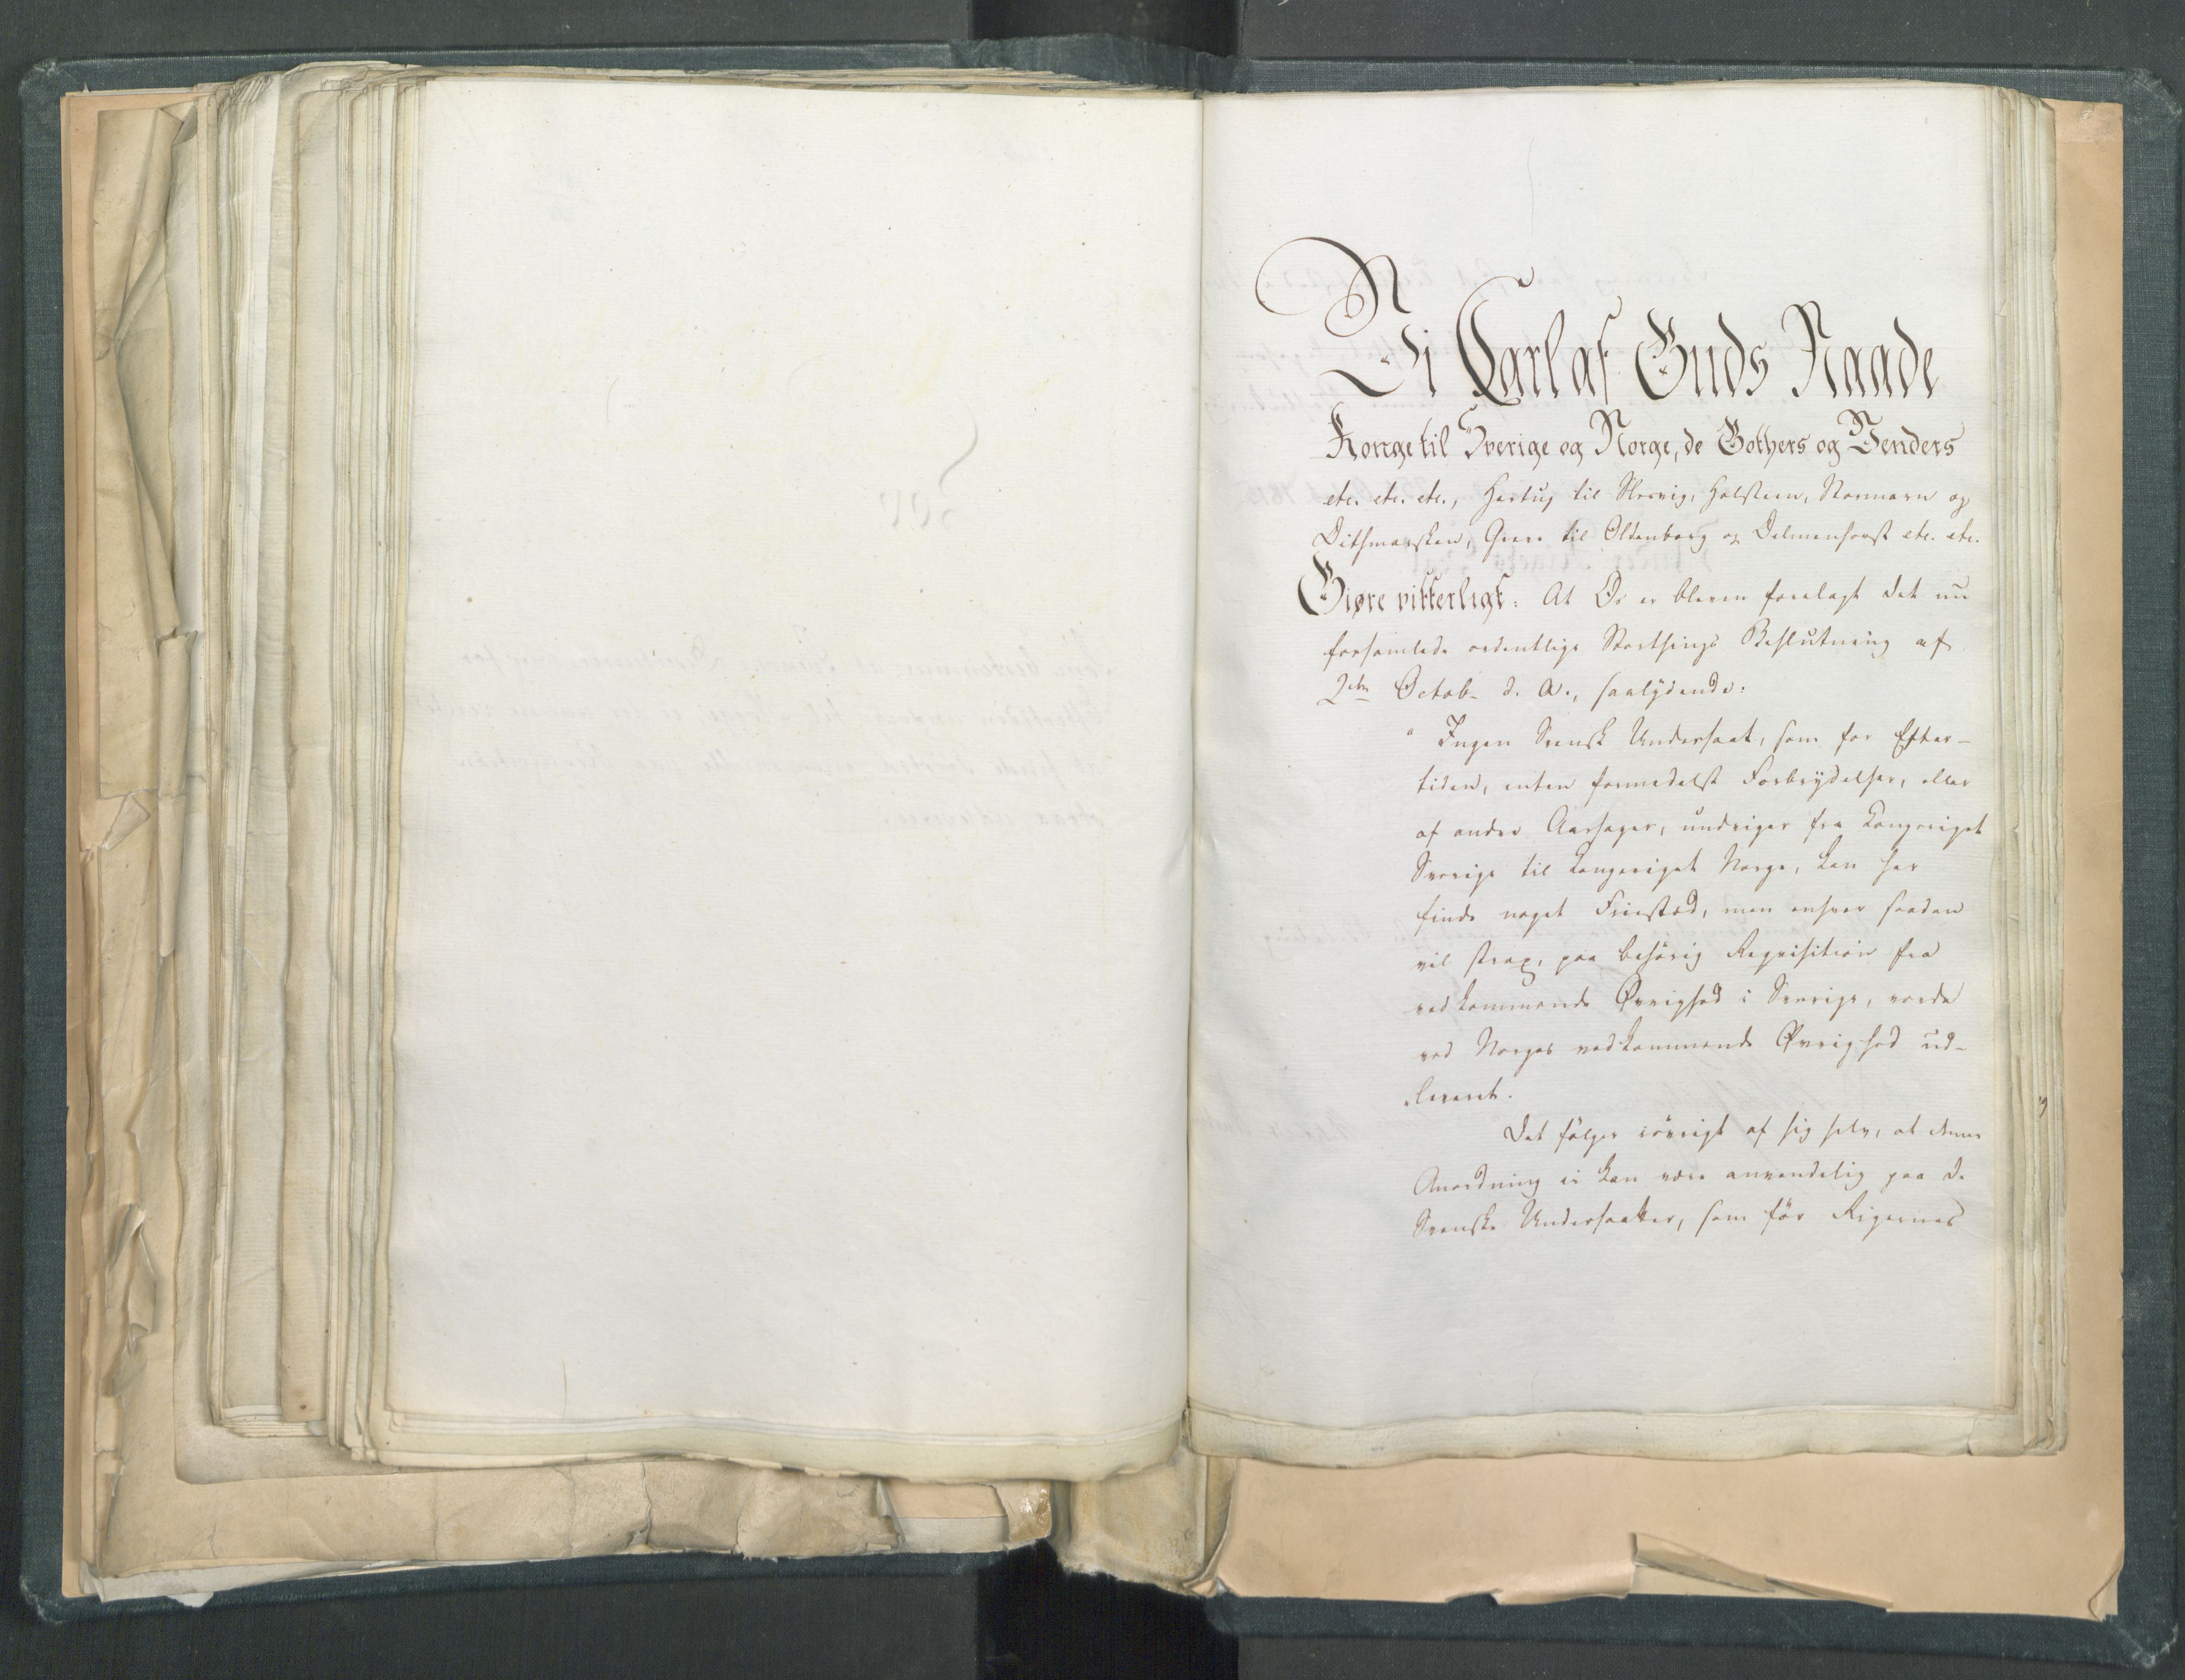 Vi Carl af Guds Naade
Konge til Sverige og Norge, de Gothers og Venders
etc. etc. etc., Hertug til Slesvig, Holsteen, Stormarn og
Dithmarsken, Greve til Oldenborg og Delmenhorst etc. etc.
Giøre vitterligt: At Os er bleven forelagt det nu
forsamlede ordentlige Storthings Beslutning af
2den Octobr d. A., saalÿdende:
" Ingen Svensk Undersaat, som for Efter-
tiden, enten formedelst Forbrÿdelser, eller
af andre Aarsager, undviger fra Kongeriget
Sverige til Kongeriget Norge, kan her
finde noget Friested, men enhver saadan
vil strax, paa behörig Reqvisition fra
vedkommende Øvrighed i Sverige, vorde
ved Norges vedkommende Øvrighed ud-
leveret.
Det fölger iövrigt af sig selv, at denne
Anordning ei kan være anvendelig paa de
Svenske Undersaatter, som för Rigernes